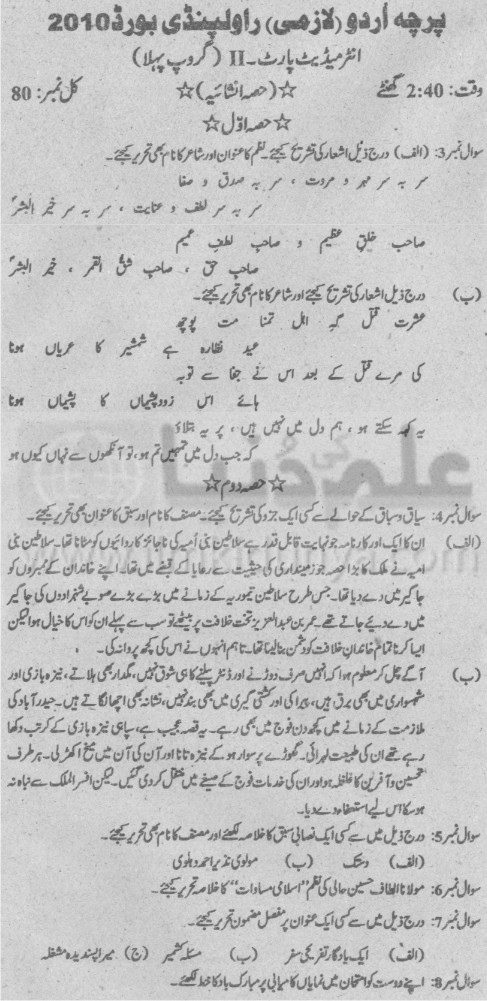 پرچہ اُردو (لازمی) راولپنڈی بورڈ 2010
انٹرمیڈیٹ پارٹ - II (گروپ پہلا)
وقت: 2:40 گھنٹے ☆(حصہ انشائیہ)☆ کل نمبر: 80
☆ حصہ اوّل ☆
سوال نمبر 3: (الف) درج ذیل اشعار کی تشریح کیجئے۔ نظم کا عنوان اور شاعر کا نام بھی تحریر کیجئے۔
سر بہ سر مہر و مروت ، سر بہ صدق و صفا
سر بہ سر لطف و عنایت ، سر بہ سر خیر البشرؐ
صاحب خلقِ عظیم و صاحب لطفِ عمیم
صاحبِ حق ، صاحبِ شقُ القمر ، خیر البشرؐ
(ب) درج ذیل اشعار کی تشریح کیجئے اور شاعر کا نام بھی تحریر کیجئے۔
عشرت قتل گہِ اہل تمنا مت پوچھ
عید نظارہ ہے شمشیر کا عریاں ہونا
کی مرے قتل کے بعد اس نے جفا سے توبہ
ہائے اس زود پشیماں کا پشیماں ہونا
یہ کہہ سکتے ہو ، ہم دل میں نہیں ہیں ، پر یہ بتلاؤ
کہ جب دل میں تمہیں تم ہو، تو آنکھوں سے نہاں کیوں ہو
علم کی دُنیا
☆ حصہ دوم ☆
سوال نمبر 4: سیاق و سباق کے حوالے سے کسی ایک جزو کی تشریح کیجئے۔ مصنف کا نام اور سبق کا عنوان بھی تحریر کیجئے۔
(الف) ان کا ایک اور کارنامہ جو نہایت قابل قدر ہے سلاطین بنی اُمیہ کی ناجائز کارروائیوں کو مٹانا تھا۔ سلاطین بنی
امیہ نے ملک کا بڑا حصہ جو زمینداری کی حیثیت سے رعایا کے قبضے میں تھا۔ اپنے خاندان کے ممبروں کو
جاگیر میں دے دیا تھا۔ جس طرح سلاطین تیموریہ کے زمانے میں بڑے بڑے صوبے شہزادوں کی جاگیر
میں دے دیئے جاتے تھے عمر بن عبدالعزیز تخت خلافت پر بیٹھے تو سب سے پہلے ان کو اس کا خیال ہوا لیکن
ایسا کرنا تمام خاندانِ خلافت کو دشمن بنا لینا تھا۔ تاہم انہوں نے اس کی کچھ پروانہ کی۔
(ب) آگے چل کر معلوم ہوا کہ انہیں صرف دوڑنے اور ڈنٹر پیلنے کا ہی شوق نہیں، مگدار بھی ہلاتے، نیزہ بازی اور
شہسواری میں بھی برق ہیں، پیراکی اور کشتی گیری میں بھی بند نہیں، نشانہ بھی اچھا لگاتے ہیں۔ حیدرآباد کی
ملازمت کے زمانے میں کچھ دن فوج میں بھی رہے۔ یہ قصہ عجیب ہے، سپاہی نیزہ بازی کے کرتب دکھا
رہے تھے ان کی طبیعت لہرائی۔ گھوڑے پر سوار ہو کے نیزہ تانا اور آن کی آن میں میخ اکھڑ لی۔ ہر طرف
تحسین و آفرین کا غلغلہ ہوا اور ان کی خدمات فوج کے صیغے میں منتقل کر دی گئیں۔ لیکن افسر الملک سے نباہ نہ
ہو سکا اس لیے استعفاء دے دیا۔
سوال نمبر 5: درج ذیل میں سے کسی ایک نصابی سبق کا خلاصہ لکھئے اور مصنف کا نام بھی تحریر کیجئے۔
(الف) دستک (ب) مولوی نذیر احمد دہلوی
سوال نمبر 6: مولانا الطاف حسین حالی کی نظم "اسلامی مساوات" کا خلاصہ تحریر کیجئے۔
سوال نمبر 7: درج ذیل میں سے کسی ایک عنوان پر مفصل مضمون تحریر کیجئے۔
(الف) ایک یادگار تفریحی سفر (ب) مسئلہ کشمیر (ج) میرا پسندیدہ مشغلہ
سوال نمبر 8: اپنے دوست کو امتحان میں نمایاں کامیابی پر مبارک باد کا خط لکھئے۔